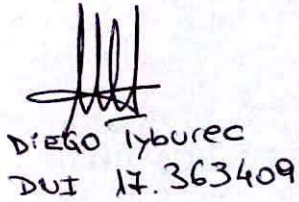 DiEGO Tyburec
DUI 17.363409